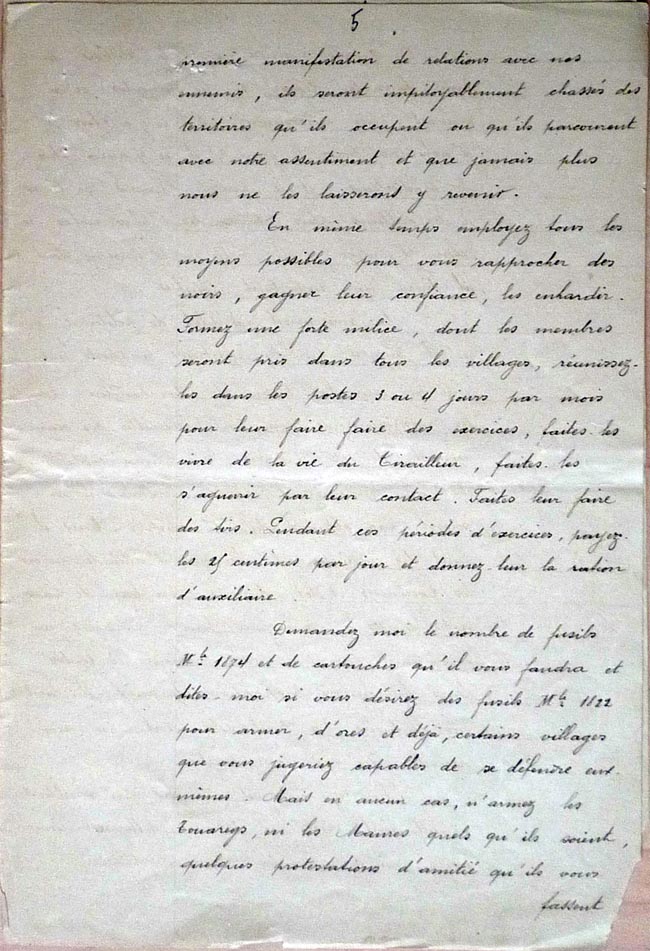 5
première manifestation de relations avec nos
ennemis, ils seront impitoyablement chassés des
territoires qu'ils occupent ou qu'ils parcourent
avec notre assentiment et que jamais plus
nous ne les laisserons y revenir.
En même temps employez tous les
moyens possibles pour vous rapprocher des
noirs, gagner leur confiance, les enhardir.
Formez une forte milice, dont les membres
seront pris dans tous les villages, réunissez-
les dans les postes 3 ou 4 jours par mois
pour leur faire faire des exercices, faites-les
vivre de la vie du Tirailleur, faites-les
s'aguerir par leur contact. Faites leur faire
des tirs. Pendant ces périodes d'exercices, payez-
les 25 centimes par jour et donnez-leur la ration
d'auxiliaire
Demandez moi le nombre de fusils
Mle 1874 et de cartouches qu'il vous faudra et
dites-moi si vous désirez des fusils Mle 1822
pour armer, d'ores et déjà, certains villages
que vous jugeriez capables de se défendre eux-
mêmes. Mais en aucun cas, n'armez les
Touaregs, ni les Maures quels qu'ils soient,
quelques protestations d'amitié qu'ils vous
fassent